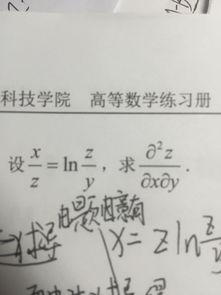 科技学院 高等数学练习册
设 x/z = ln z/y，求 ∂²z/∂x∂y.
由题意有
x = z ln z/y